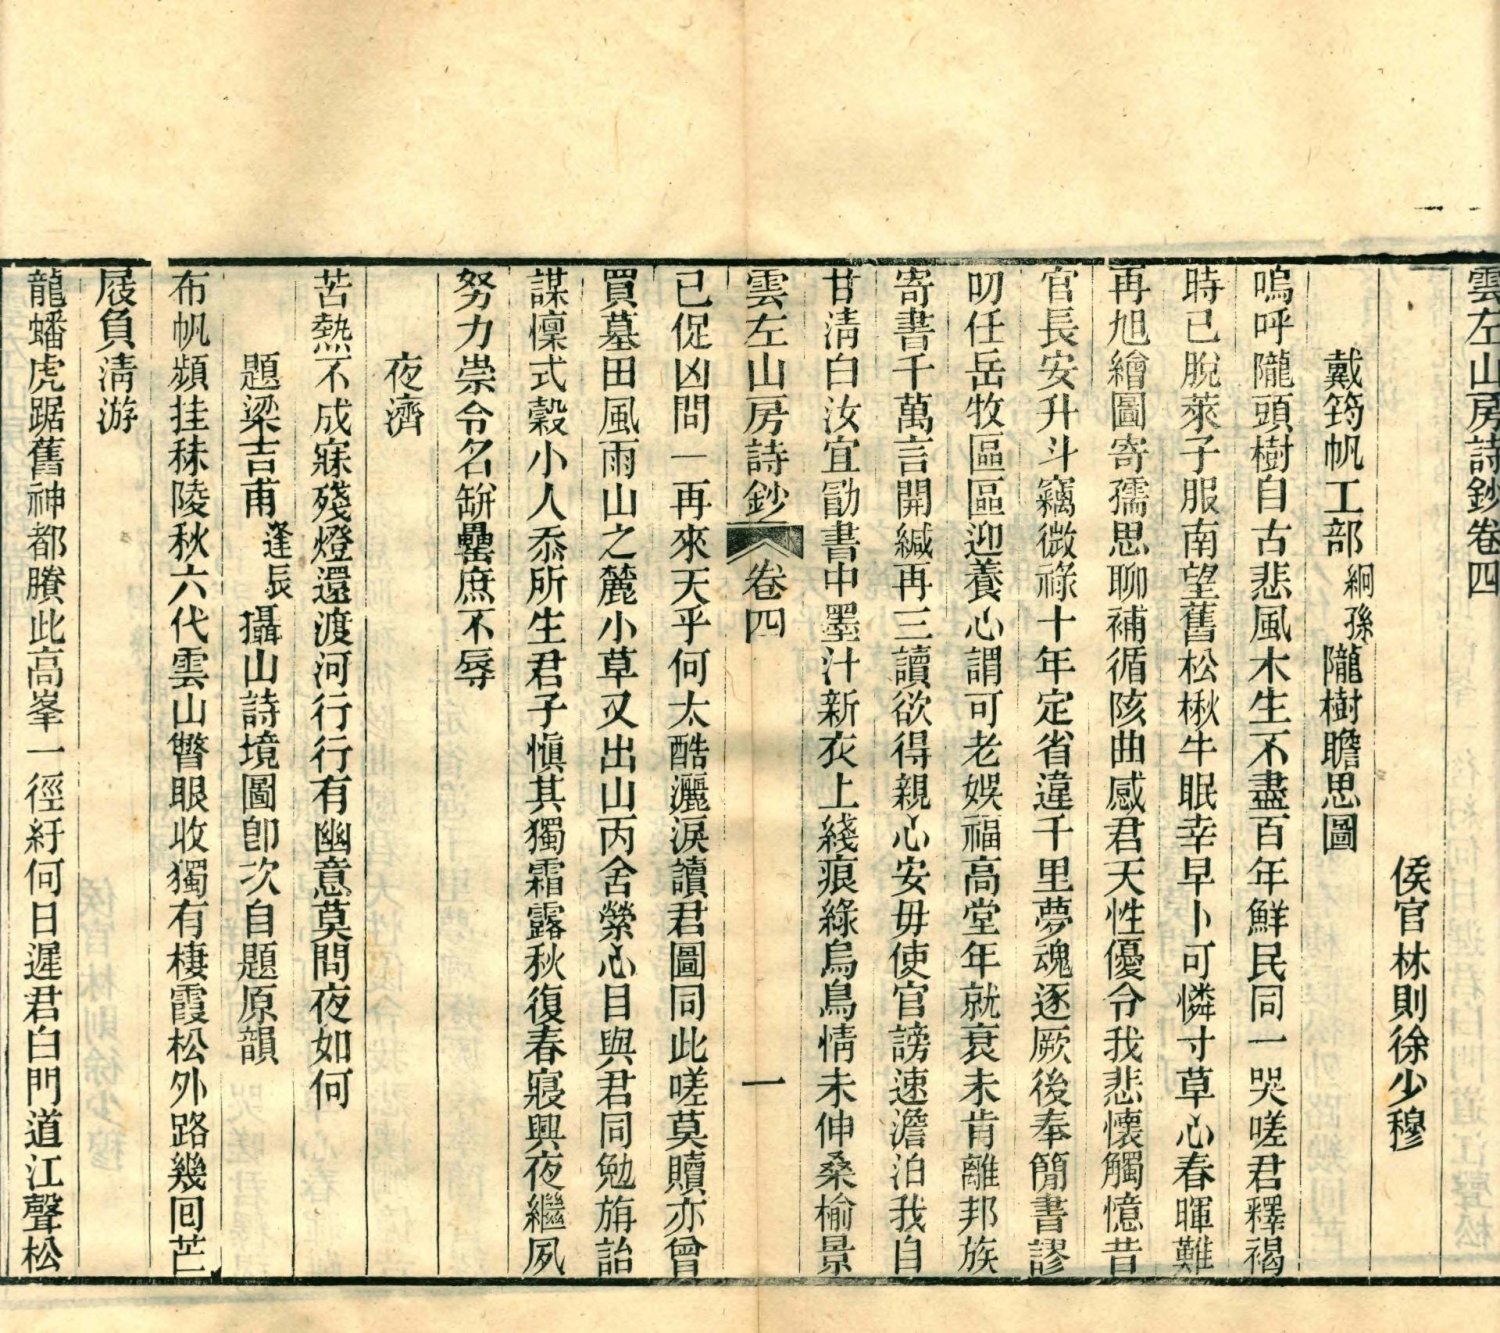 雲左山房詩鈔卷四
侯官林則徐少穆
戴筠帆工部絅孫隴樹瞻思圖
嗚呼隴頭樹自古悲風木生不盡百年鮮民同一哭嗟君釋褐
時已脫萊子服南望舊松楸牛眠幸早卜可憐寸草心春暉難
再旭繪圖寄孺思聊補循陔曲感君天性優令我悲懷觸憶昔
官長安升斗竊微祿十年定省違千里夢魂逐厥後奉簡書謬
叨任岳牧區區迎養心謂可老娛福高堂年就衰未肯離邦族
寄書千萬言開緘再三讀欲得親心安毋使官謗速澹泊我自
甘淸白汝宜勖書中墨汁新衣上綫痕綠烏鳥情未伸桑榆景
雲左山房詩鈔 卷四 一
已促凶問一再來天乎何太酷灑淚讀君圖同此嗟莫贖亦曾
買墓田風雨山之麓小草又出山丙舍縈心目與君同勉旃詒
謀懔式穀小人忝所生君子愼其獨霜露秋復春寢興夜繼夙
努力崇令名缾罍庶不辱
夜濟
苦熱不成寐殘燈還渡河行行有幽意莫問夜如何
題梁吉甫逢辰攝山詩境圖卽次自題原韻
布帆頻挂秣陵秋六代雲山瞥眼收獨有棲霞松外路幾回芒
屐負淸游
龍蟠虎踞舊神都賸此高峯一徑紆何日遲君白門道江聲松